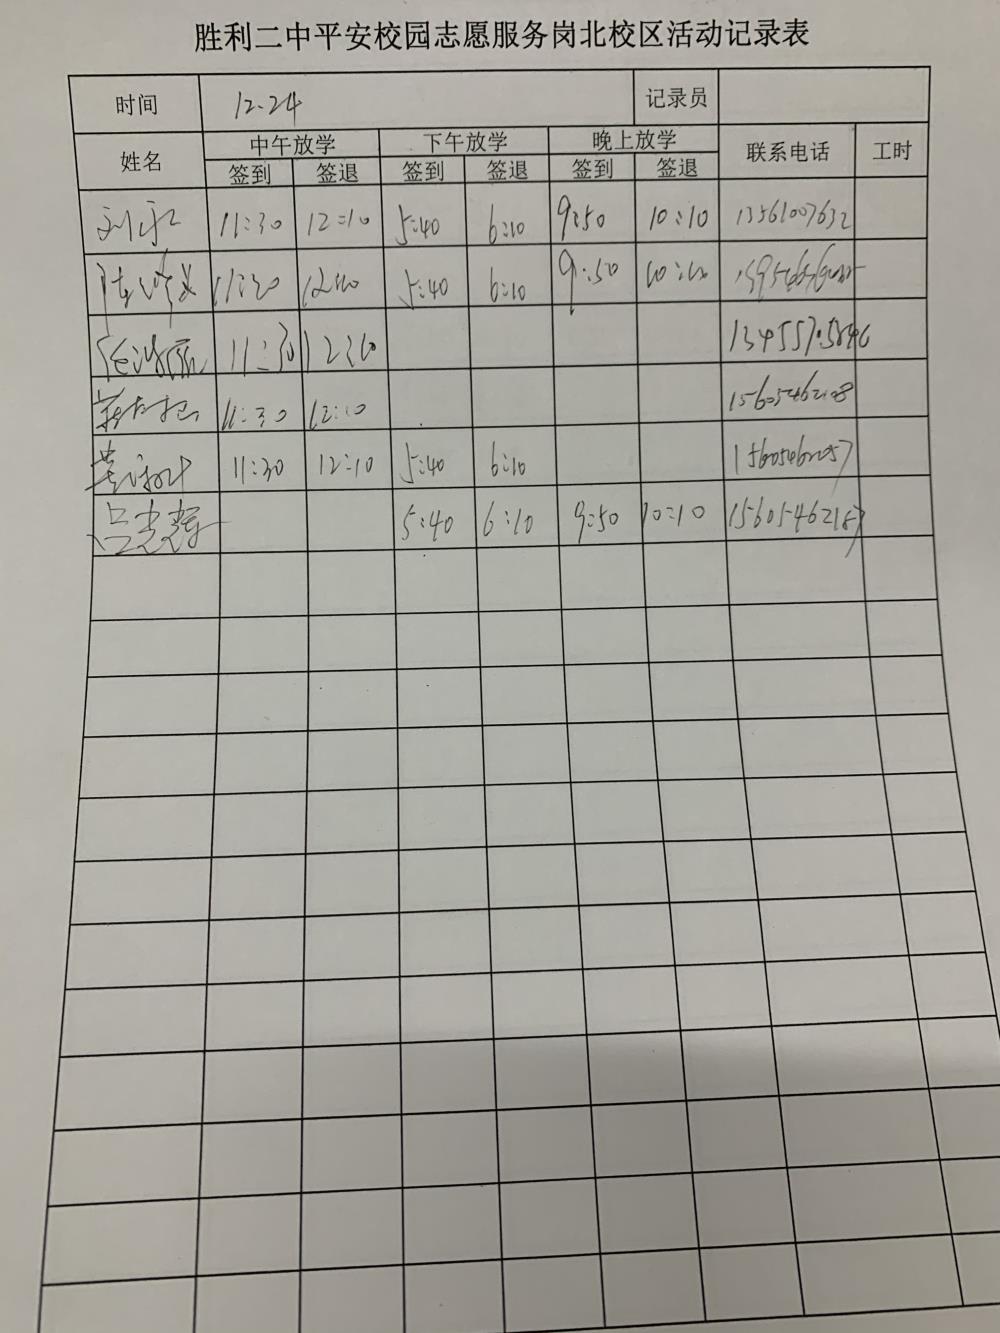 胜利二中平安校园志愿服务岗北校区活动记录表
时间 12.24 记录员
姓名 中午放学 下午放学 晚上放学 联系电话 工时
签到 签退 签到 签退 签到 签退
11:30 12:10 5:40 6:10 9:50 10:10 13561007632
11:30 12:10 5:40 6:10 9:50 10:10
11:30
11:30 12:10 15605462108
11:30 12:10 5:40 6:10 15605462057
吕志辉 5:40 6:10 9:50 10:10 15605462187